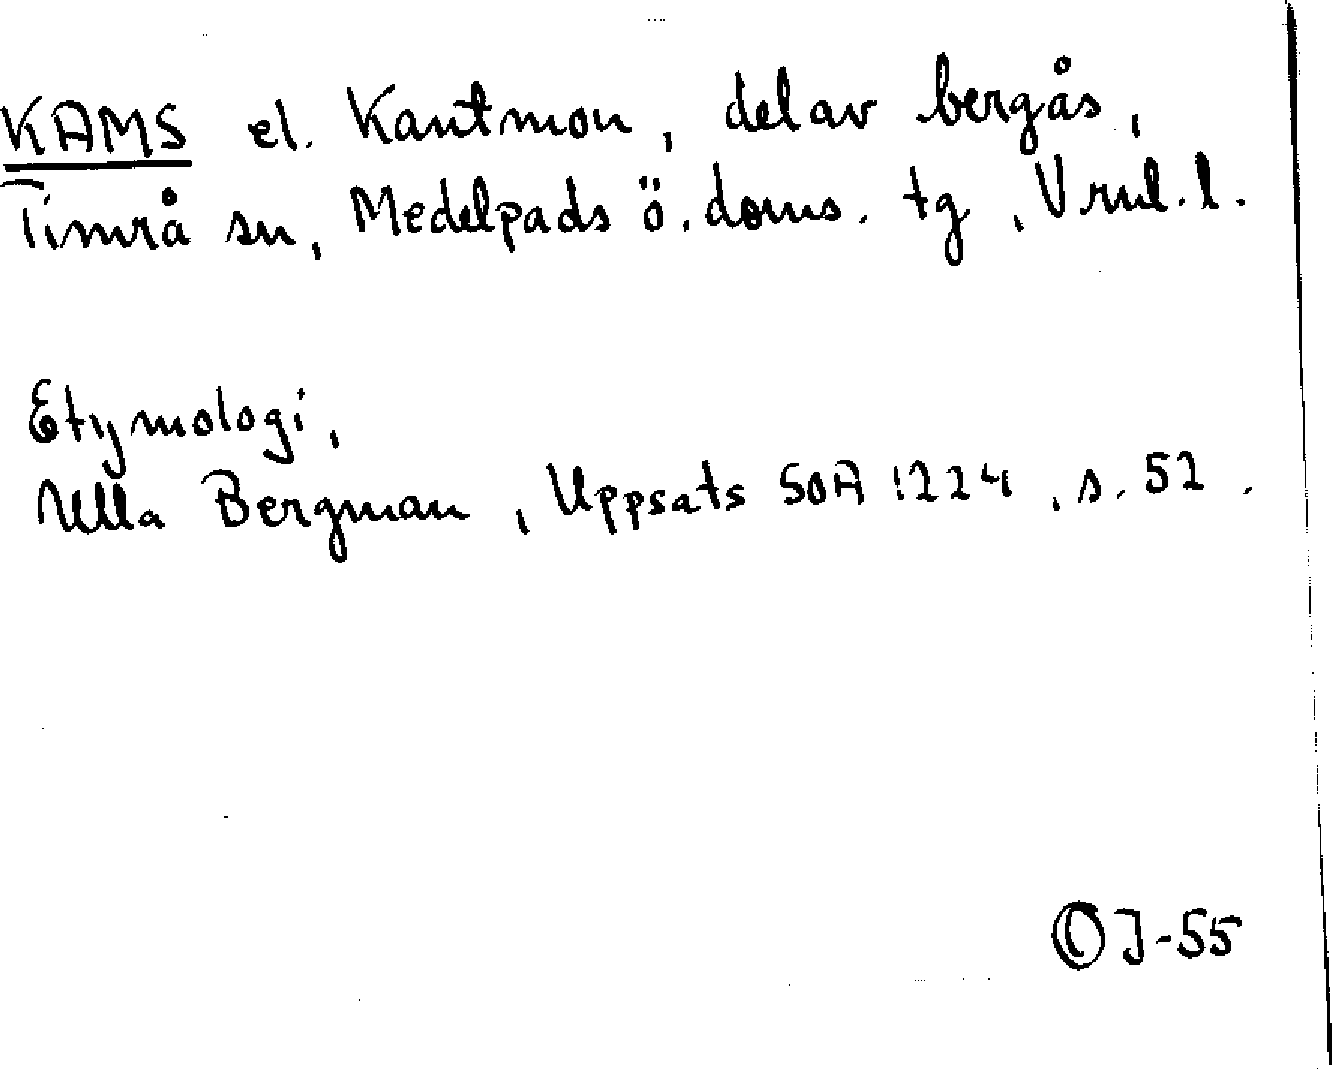 KAMS el. Kantmon, del av bergås,
Timrå sn, Medelpads ö. doms. tg, Vrnl. l.
Etymologi,
Ulla Bergman, Uppsats SOA 1224, s. 52.
OJ-55